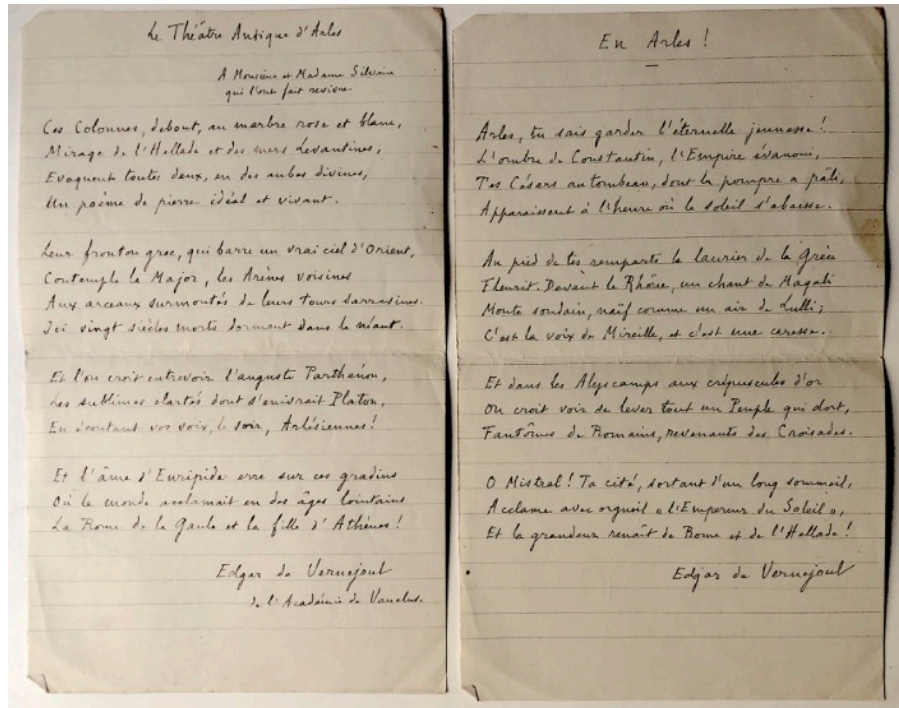 Le Théâtre Antique d'Arles
A Monsieur et Madame Silvain
qui l'ont fait revivre.
Ces Colonnes, debout, au marbre rose et blanc,
Mirage de l'Hellade et des mers Levantines,
Evoquent toutes deux, en des aubes divines,
Un poème de pierre idéal et vivant.
Leur fronton grec, qui barre un vrai ciel d'Orient,
Contemple la Major, les Arènes voisines
Aux arceaux surmontés de leurs tours sarrasines.
Ici vingt siècles morts dorment dans le néant.
Et l'on croit entrevoir l'auguste Parthénon,
Les sublimes clartés dont s'enivrait Platon,
En écoutant vos voix, le soir, Arlésiennes!
Et l'âme d'Euripide erre sur ces gradins
Où le monde acclamait en des âges lointains
La Rome de la Gaule et la fille d'Athènes!
Edgar de Vernejoul
de l'Académie de Vaucluse.
En Arles!
Arles, tu sais garder l'éternelle jeunesse!
L'ombre de Constantin, l'Empire évanoui,
Tes Césars au tombeau, dont la pourpre a pâli,
Apparaissent à l'heure où le soleil s'abaisse.
Au pied de tes remparts le laurier de la Grèce
Fleurit. Devant le Rhône, un chant de Magali
Monte soudain, naïf comme un air de Lulli;
C'est la voix de Mireille, et c'est une caresse.
Et dans les Alyscamps aux crépuscules d'or
On croit voir se lever tout un Peuple qui dort,
Fantômes de Romains, revenants des Croisades.
O Mistral! Ta cité, sortant d'un long sommeil,
Acclame avec orgueil "l'Empereur du Soleil",
Et la grandeur renaît de Rome et de l'Hellade!
Edgar de Vernejoul